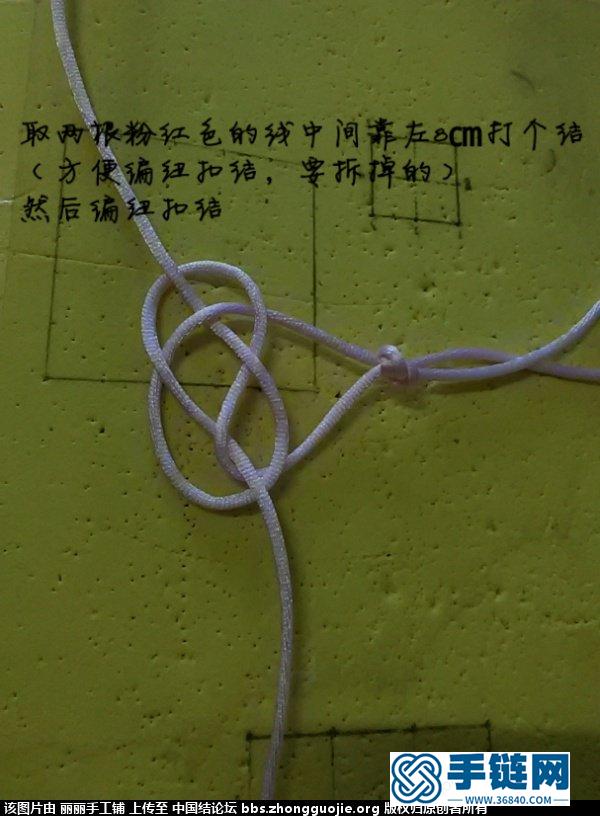 取两根粉红色的线中间靠左8cm打个结
（方便编纽扣结，要拆掉的）
然后编纽扣结
手链网
WWW.36840.COM
该图片由 丽丽手工铺 上传至 中国结论坛 bbs.zhongguojie.org 版权归原创者所有